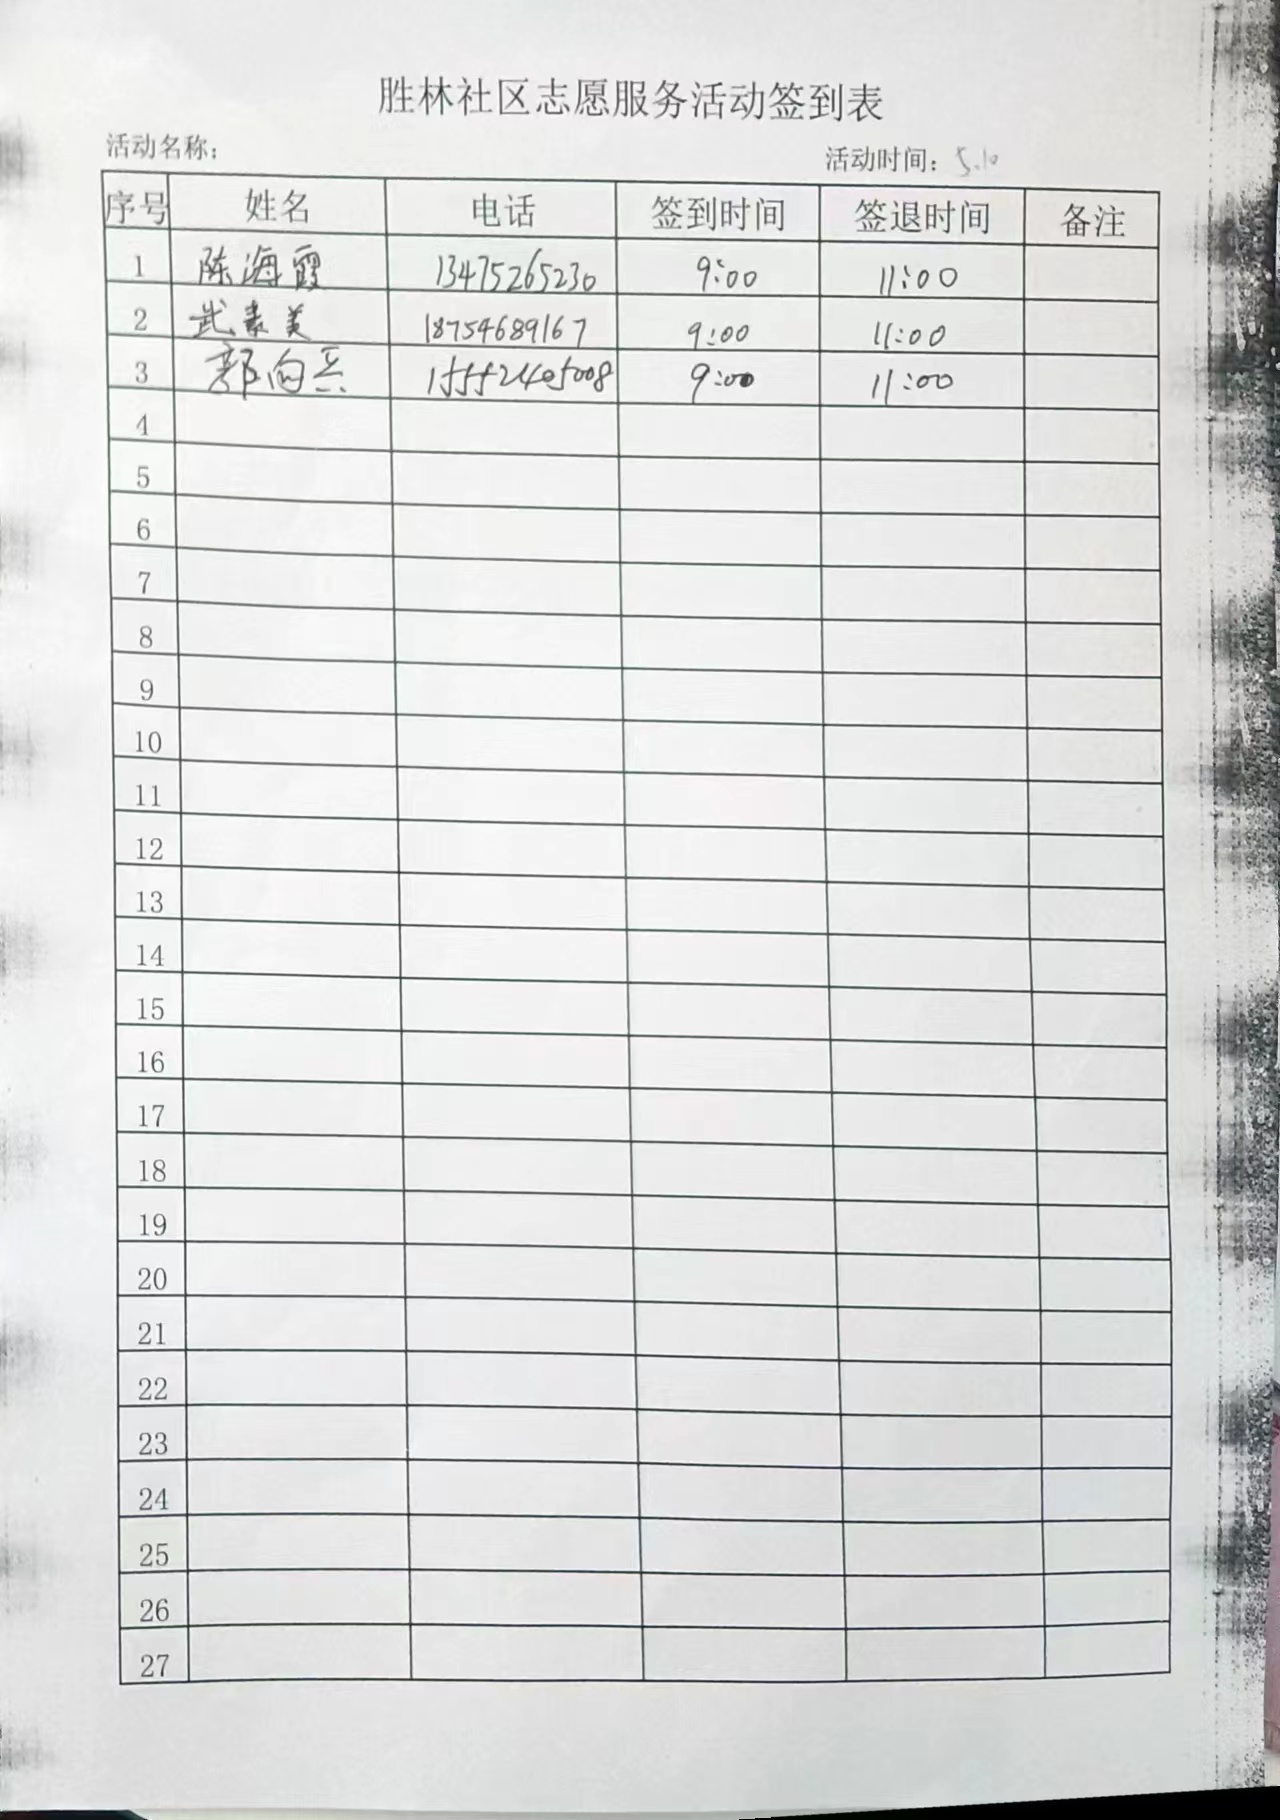 胜林社区志愿服务活动签到表
活动名称: 活动时间: 5.10
序号 姓名 电话 签到时间 签退时间 备注
1 陈海霞 13475265230 9:00 11:00
2 武素美 18754689167 9:00 11:00
3 郭向兵 15552405008 9:00 11:00
4
5
6
7
8
9
10
11
12
13
14
15
16
17
18
19
20
21
22
23
24
25
26
27